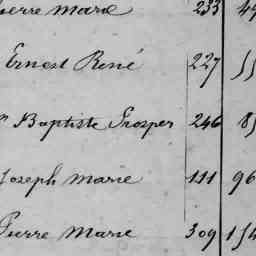 ierre Marie 233 49
Ernest René 227 55
n Baptiste Prosper 246 85
Joseph Marie 111 96
Pierre Marie 309 154